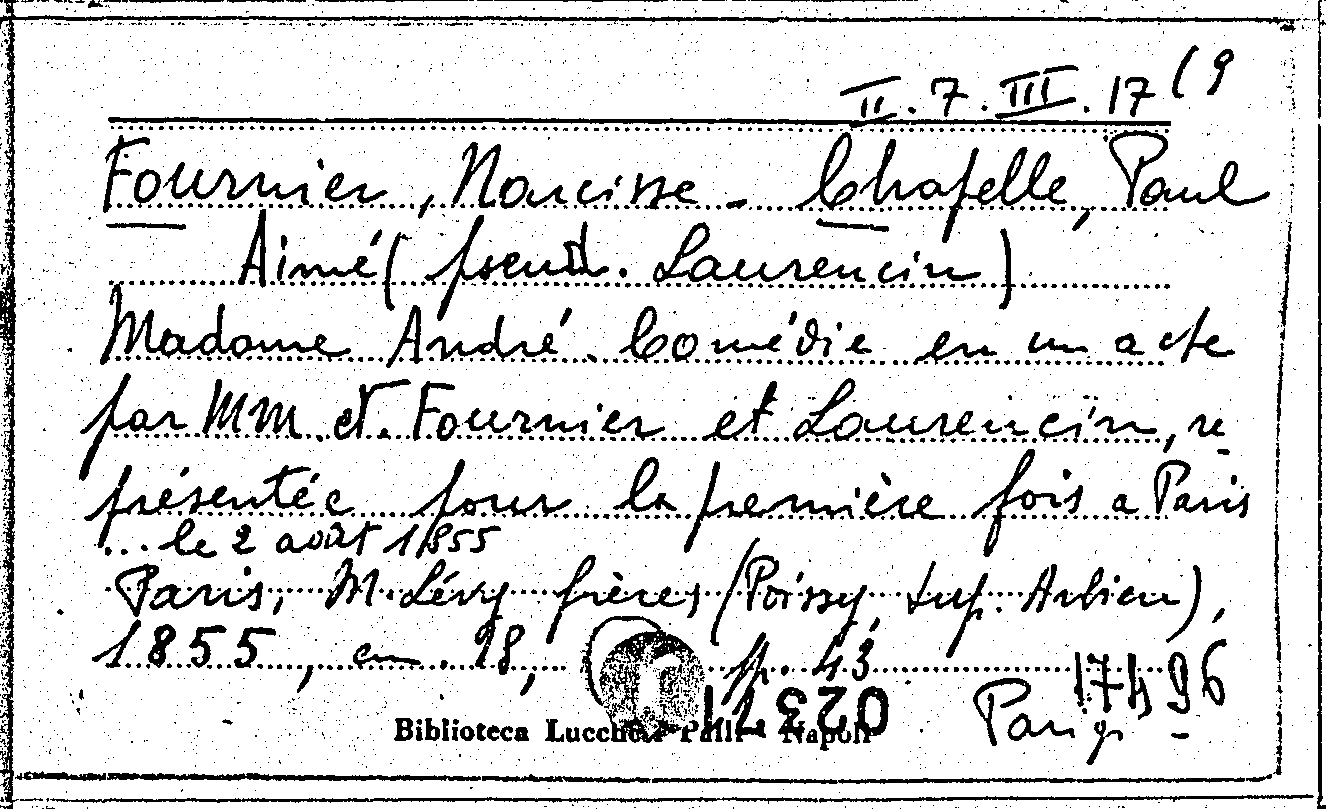 II.7.III.17 (9
Fournier, Narcisse - Chapelle, Paul
Aimé (pseud. Laurencin)
Madame André. Comédie en un acte
par MM. et. Fournier et Laurencin, re_
présentée pour la première fois a Paris
... le 2 août 1855
Paris, M. Lévy frères (Poissy, Imp. Arbieu),
1855, en. 18, pp. 43
17496
02371
Parigi -
Biblioteca Lucchesi Palli - Napoli